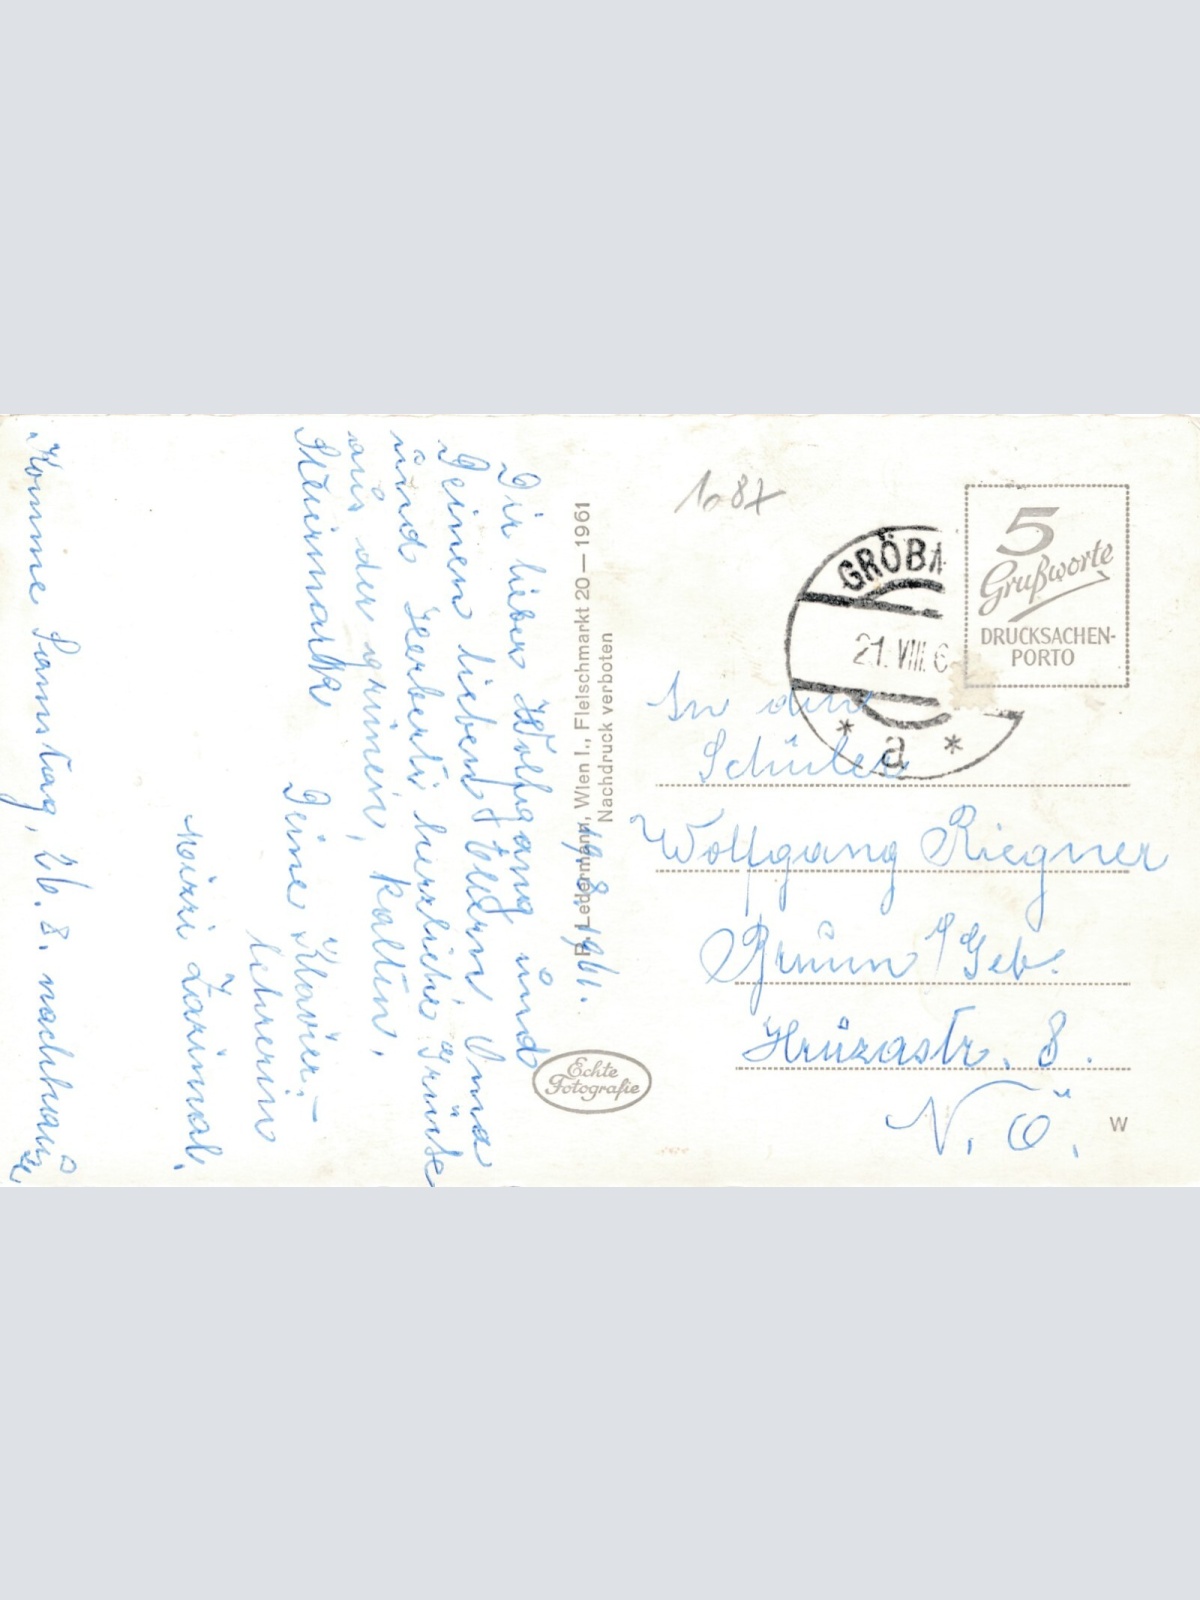 19.8.1961.
Dir lieber Wolfgang und
Deinen lieben Eltern, Oma
und Herberti herzliche Grüße
aus der grünen, kalten,
Steiermark
Deine Klavier-
lehrerin
Mizzi
Komme Samstag, 26. 8. nachhause
P. Ledermann, Wien I., Fleischmarkt 20 — 1961
Nachdruck verboten
Echte
Fotografie
1087
GRÖBM
21. VIII. 6
* a *
5
Grußworte
DRUCKSACHEN-
PORTO
An den
Schüler
Wolfgang Riegner
Brunn / Geb.
Hruzastr. 8.
N. Ö.
W